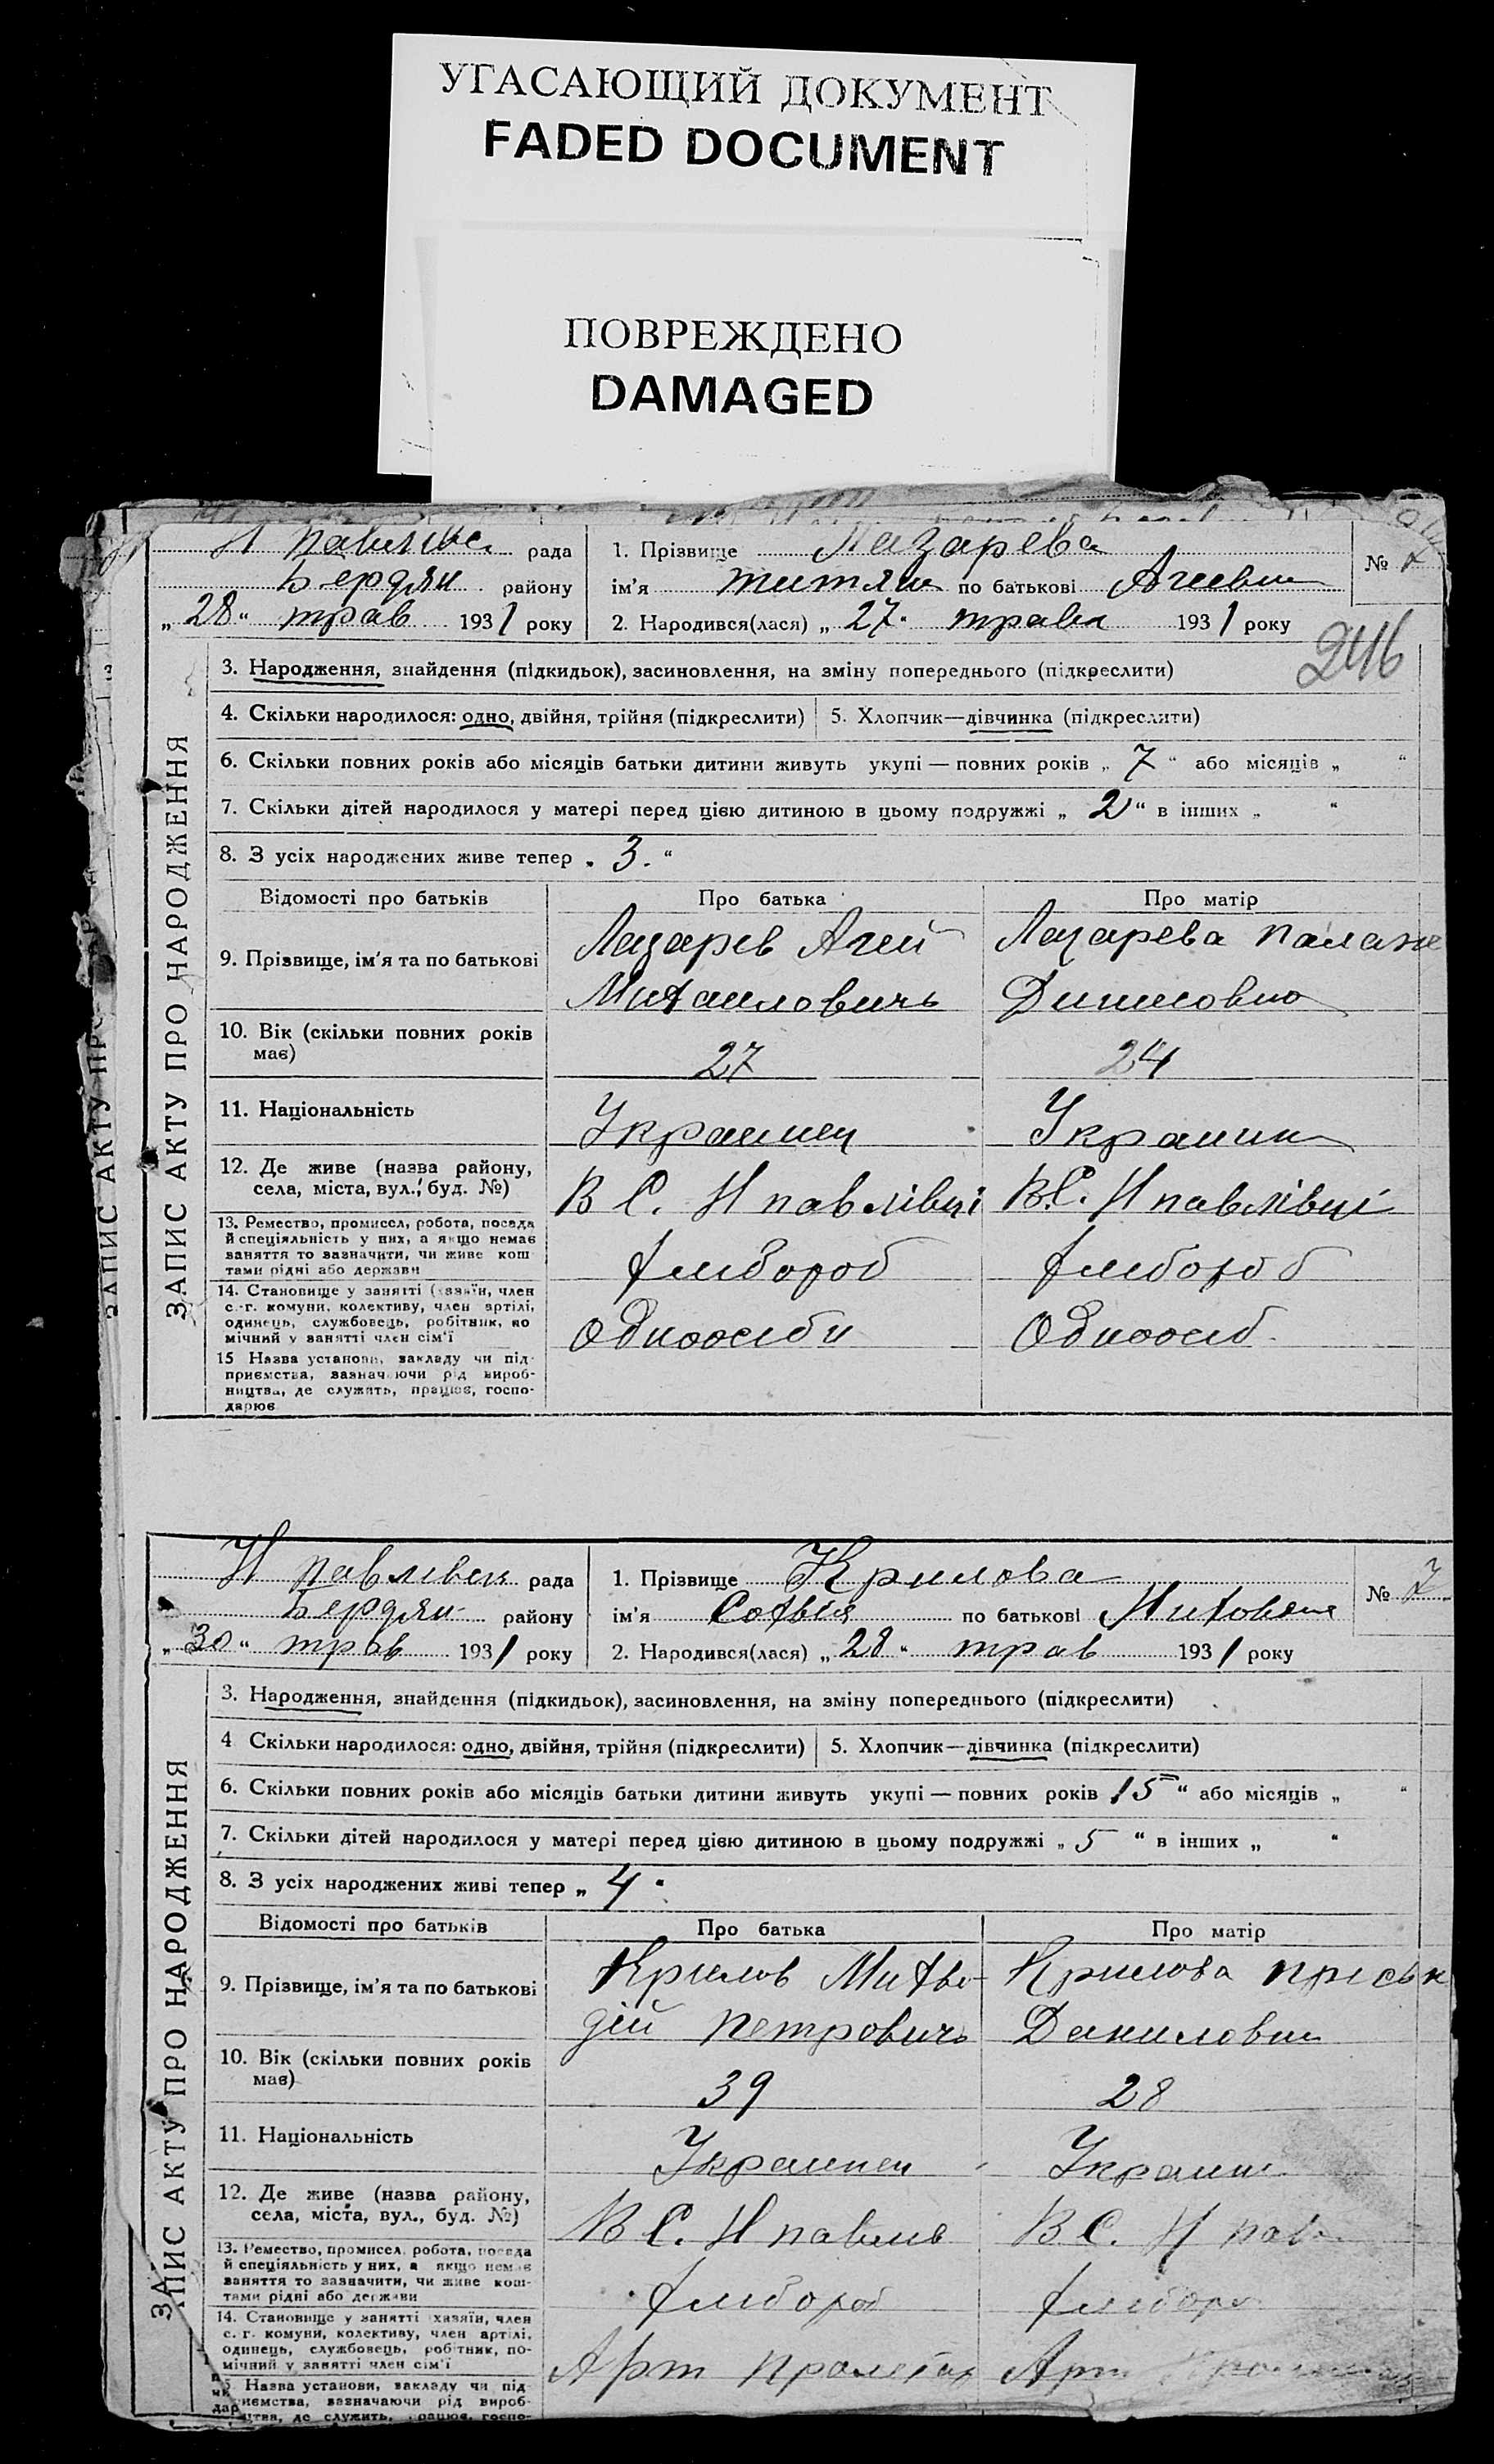 УГАСАЮЩИЙ ДОКУМЕНТ
FADED DOCUMENT
ПОВРЕЖДЕНО
DAMAGED
ЗАПИС АКТУ ПРО НАРОДЖЕННЯ
Н рада
Бердян району
„28“ трав 1931 року
1. Прізвище Лазарева
ім'я по батькові
2. Народився(лася) „27“ травл 1931 року
№
246
3. Народження, знайдення (підкидьок), засиновлення, на зміну попереднього (підкреслити)
4. Скільки народилося: одно, двійня, трійня (підкреслити) 5. Хлопчик—дівчинка (підкреслити)
6. Скільки повних років або місяців батьки дитини живуть укупі — повних років „7“ або місяців „ “
7. Скільки дітей народилося у матері перед цією дитиною в цьому подружжі „2“ в інших „ “
8. З усіх народжених живе тепер „3.“
Відомості про батьків Про батька Про матір
9. Прізвище, ім'я та по батькові
Лазарев Агей Лазарева
Михаиловичь
10. Вік (скільки повних років має) 27 24
11. Національність Украинец
12. Де живе (назва району, села, міста, вул., буд. №) В С. Н павлівці В С. Н павлівці
13. Ремество, промисел, робота, посада
й спеціяльність у них, а якщо немає
заняття то зазначити, чи живе кош
тами рідні або держави
хлібороб хлібороб
14. Становище у занятті (хазяїн, член
с.-г. комуни, колективу, член артілі,
одинець, службовець, робітник, по
мічний у занятті член сім'ї
Одноосіб
15 Назва установи, закладу чи під-
приємства, зазначаючи рід вироб-
ництва, де служить, працює, госпо-
дарює
ЗАПИС АКТУ ПРО НАРОДЖЕННЯ
Н павлівск рада
Бердян району
„30“ трав 1931 року
1. Прізвище Крилова
ім'я Софвія по батькові
2. Народився(лася) „28“ трав 1931 року
№ 7
3. Народження, знайдення (підкидьок), засиновлення, на зміну попереднього (підкреслити)
4 Скільки народилося: одно, двійня, трійня (підкреслити) 5. Хлопчик—дівчинка (підкреслити)
6. Скільки повних років або місяців батьки дитини живуть укупі — повних років 15“ або місяців „ “
7. Скільки дітей народилося у матері перед цією дитиною в цьому подружжі „5“ в інших „ “
8. З усіх народжених живі тепер „4“
Відомості про батьків Про батька Про матір
9. Прізвище, ім'я та по батькові
Крилов Крилова
дій Петровичь Даниловн
10. Вік (скільки повних років має) 39 28
11. Національність Украинец
12. Де живе (назва району, села, міста, вул., буд. №) В С. Н павлів В С. Н пав
13. Ремество, промисел, робота, посада
й спеціяльність у них, а якщо немає
заняття то зазначити, чи живе кош-
тами рідні або держави
хлібороб хлібор
14. Становище у занятті хазяїн, член
с. г. комуни, колективу, член артілі,
одинець, службовець, робітник, по-
мічний у занятті член сім'ї
Арт Пролетар Арт
15. Назва установи, закладу чи під
приємства, зазначаючи рід вироб-
ництва, де служить, працює, госпо-